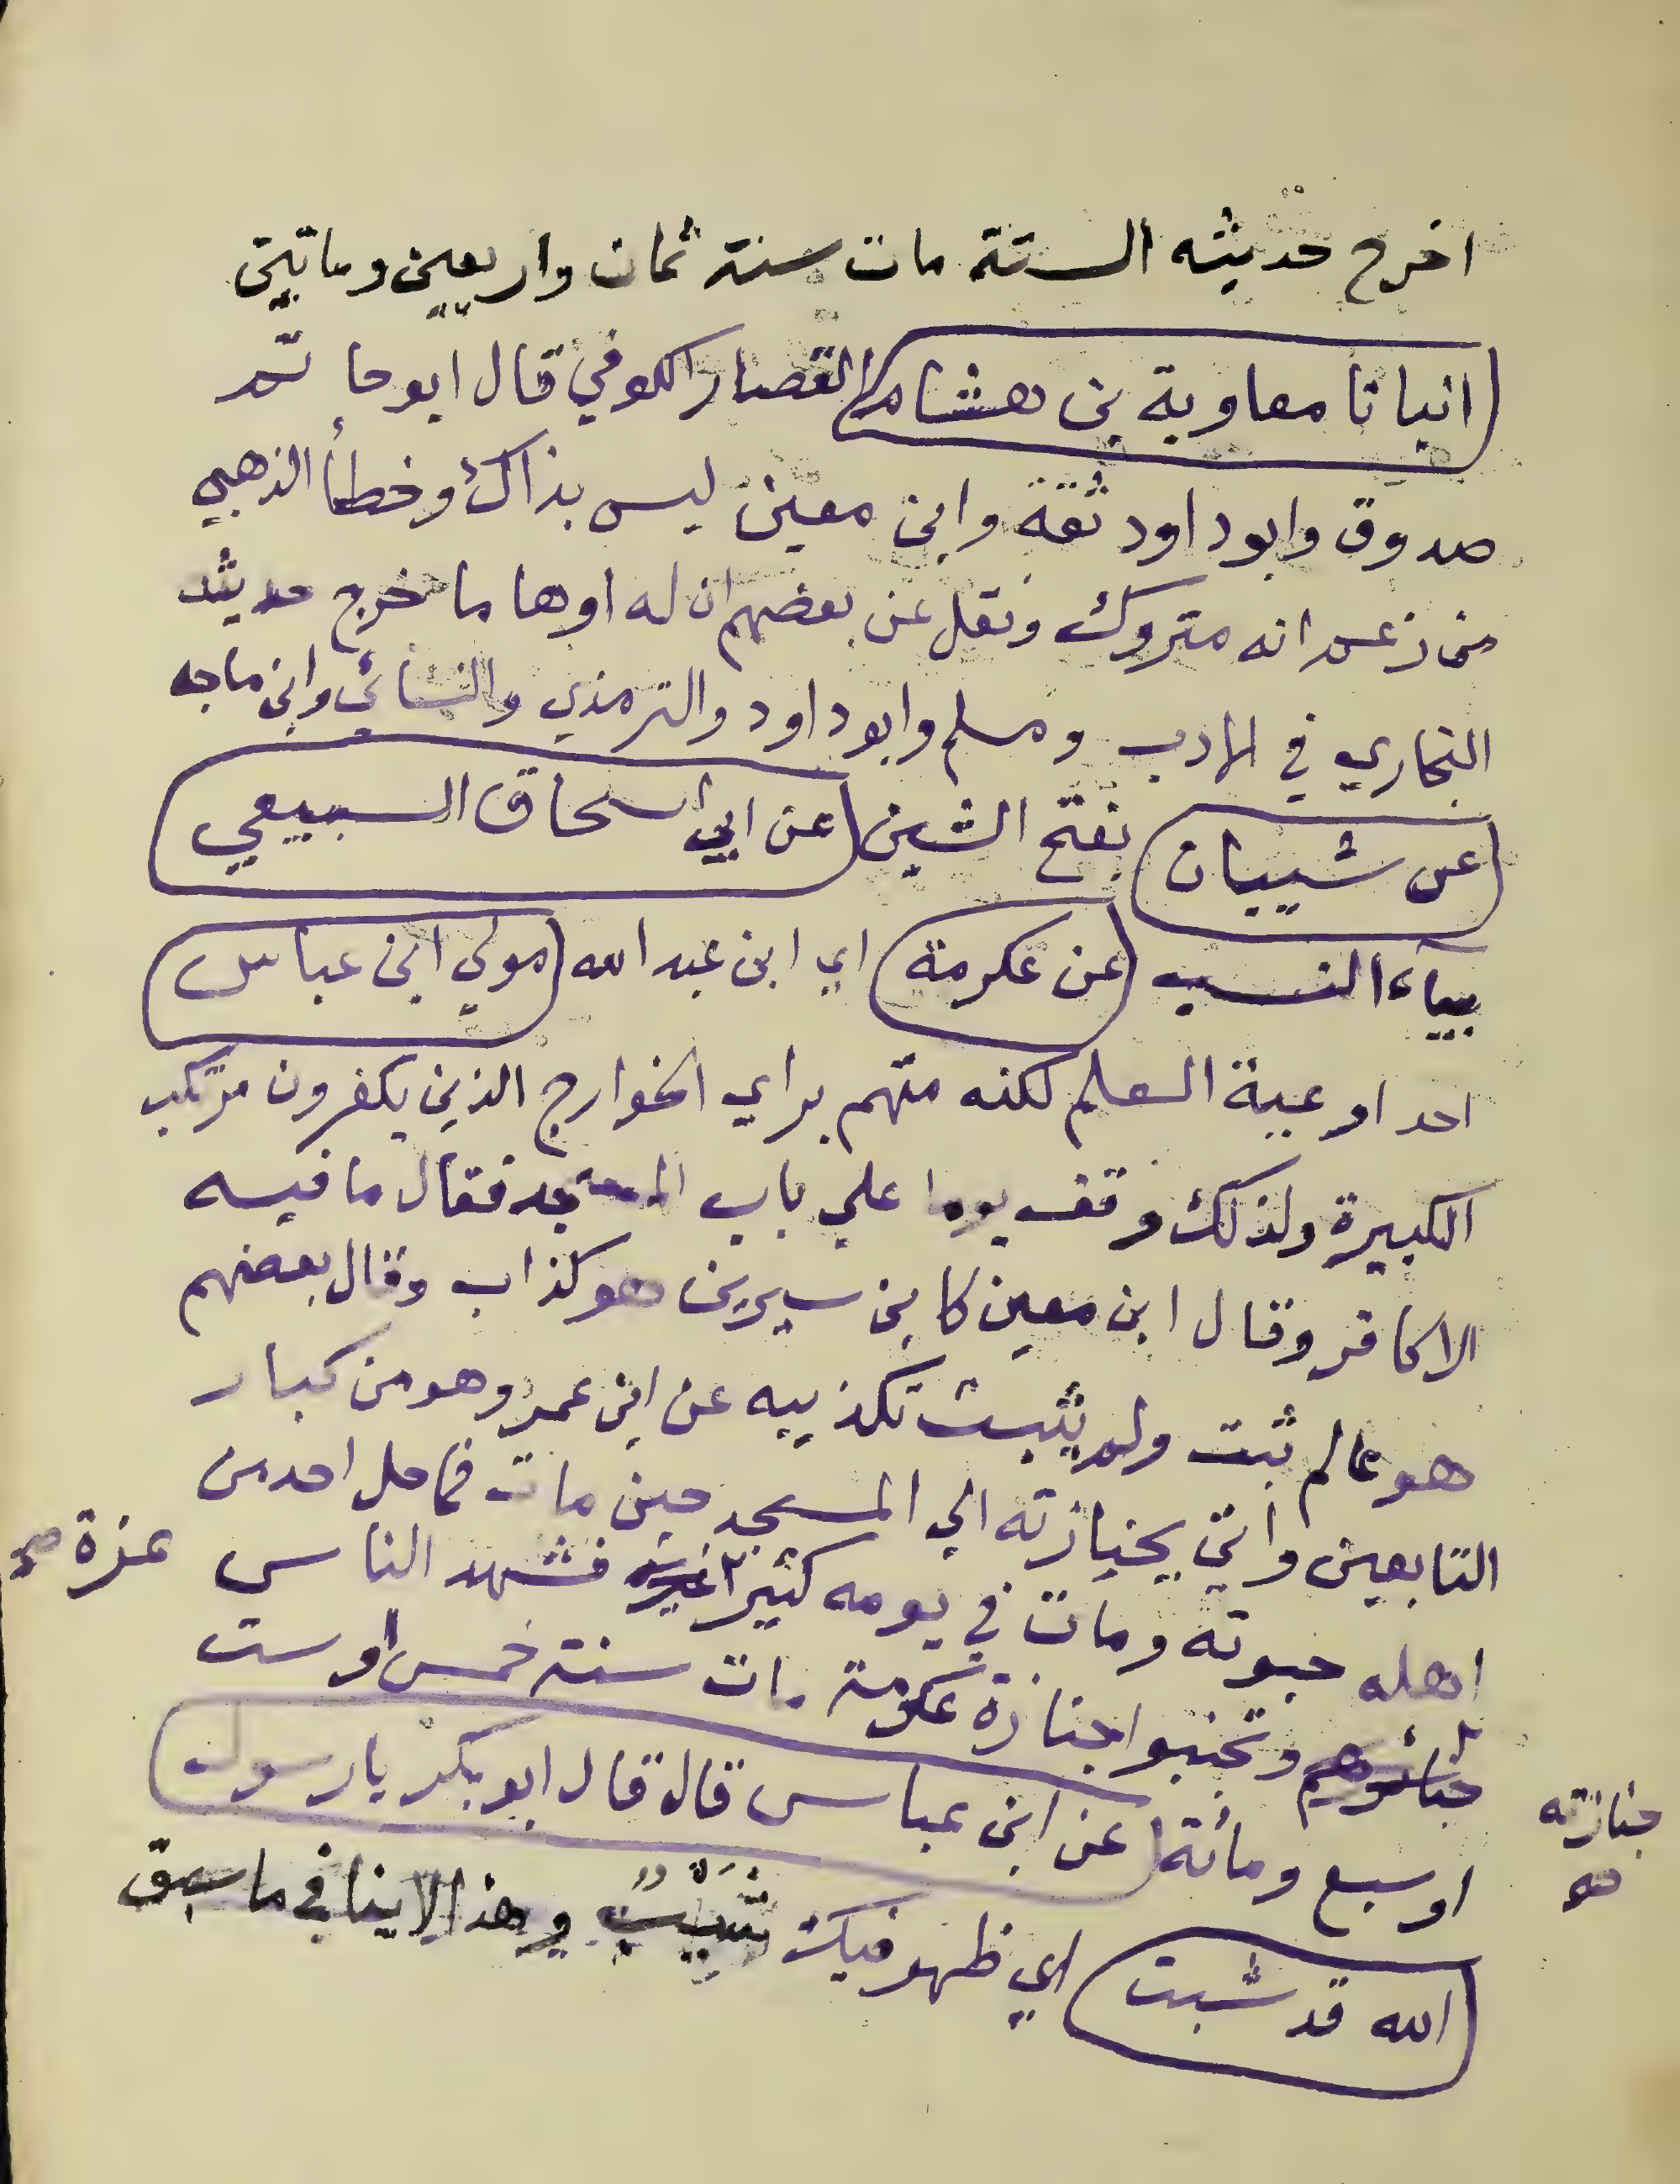 اخرج حديثه الستة مات سنة ثمان واربعين وماتيتن
انبانا معاوية بن هشام القصار الكوفي قال ابو حاتم
صدوق وابو داود ثقة وابن معين ليس بذاك وخطأ الذهبي
من زعم انه متروك ونقل عن بعضهم ان له اوهاما خرج حديثه
البخاري في الادب ومسلم وابو داود والترمذي والنسائي وابن ماجه
عن شيبان بفتح الشين عن ابي اسحاق السبيعي
بياء النسب عن عكرمة اي ابن عبد الله مولي ابن عباس
احد اوعية العلم لكنه متهم براي الخوارج الذين يكفرون مرتكب
الكبيرة ولذلك وقف يوما علي باب المسجد فقال ما فيه
الا كافر وقال ابن معين كابن سيرين هو كذاب وقال بعضهم
هو عالم ثبت ولم يثبت تكذيبه عن ابن عمر وهو من كبار
التابعين واتي بجنازته الي المسجد حين مات فما حل احد من
اهله حبوته ومات في يومه كثير فشهد الناس عزة
وتجنبوا جنازة عكرمة مات سنة خمس او ست
جنازته
او سبع ومائة عن ابن عباس قال قال ابو بكر يا رسول
الله قد شبت اي ظهر فيك شيب وهذا لا ينافي ما سبق